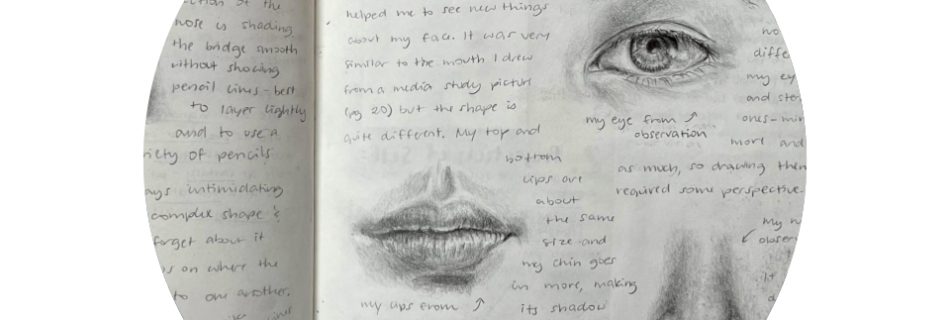 nose is shading
the bridge smooth
without showing
pencil lines - best
to layer lightly
and to use a
variety of pencils
intimidating
complex shape &
forget about it
on where the
to one another.
helped me to see new things
about my face. It was very
similar to the mouth I drew
from a media study picture
(pg 20) but the shape is
quite different. My top and
bottom
lips are
about
the same
size and
my chin goes
in more, making
its shadow
my lips from
my eye from
observation
no
diffe
my ey
and ste
ones - mi
more and
as much, so drawing them
required some perspective.
my n
obser